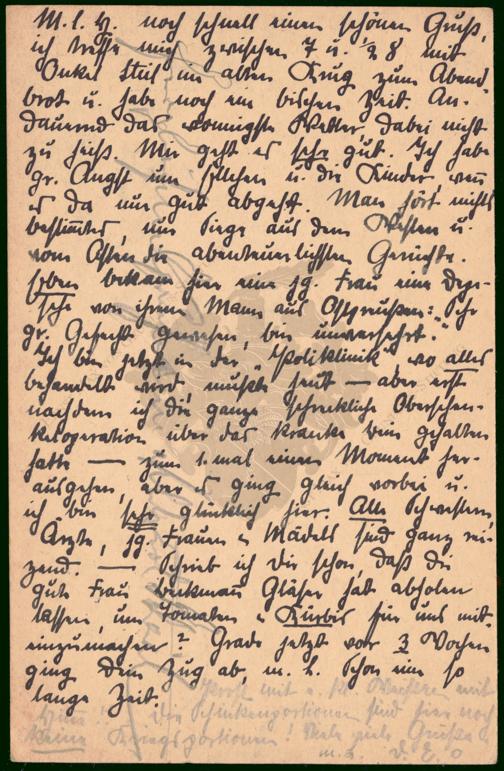 M. l. H. noch schnell einen schönen Gruß,
ich treffe mich zwischen 7 u. ½ 8 mit
Onkel Stich im alten Krug zum Abend-
brot u. habe noch ein bischen Zeit. An-
dauernd das wonnigste Wetter, dabei nicht
zu heiß. Mir geht es sehr gut. Ich habe
gr. Angst um Ellchen u. die Kinder, wenn
es da nur gut abgeht. Man hört nichts
bestimmtes, nur Siege aus dem Westen u.
vom Osten die abenteuerlichsten Gerüchte.
Eben bekam hier eine jg. Frau eine Depe-
sche von ihrem Mann aus Ostpreußen: "Sehr
gr. Gefecht gewesen, bin unversehrt."
Ich bin jetzt in der "Poliklinik", wo alles
behandelt wird, mußte heut — aber erst
nachdem ich die ganze schreckliche Oberschen-
keloperation über das kranke Bein gehalten
hatte — zum 1. mal einen Moment her-
ausgehen, aber es ging gleich vorbei u.
ich bin sehr glücklich hier. Alle Schwestern
Ärzte, jg. Frauen u Mädels sind ganz rei-
zend. — Schrieb ich Dir schon, daß die
gute Frau Beckmann Gläser hat abholen
lassen, um Tomaten u Kürbis für uns mit
einzumachen? Grade jetzt vor 3 Wochen
ging Dein Zug ab, m. H. Schon eine so
lange Zeit.
mit u. mit
die Schinkenportionen sind hier noch
keine Kriegsportionen! Viele viele Grüße